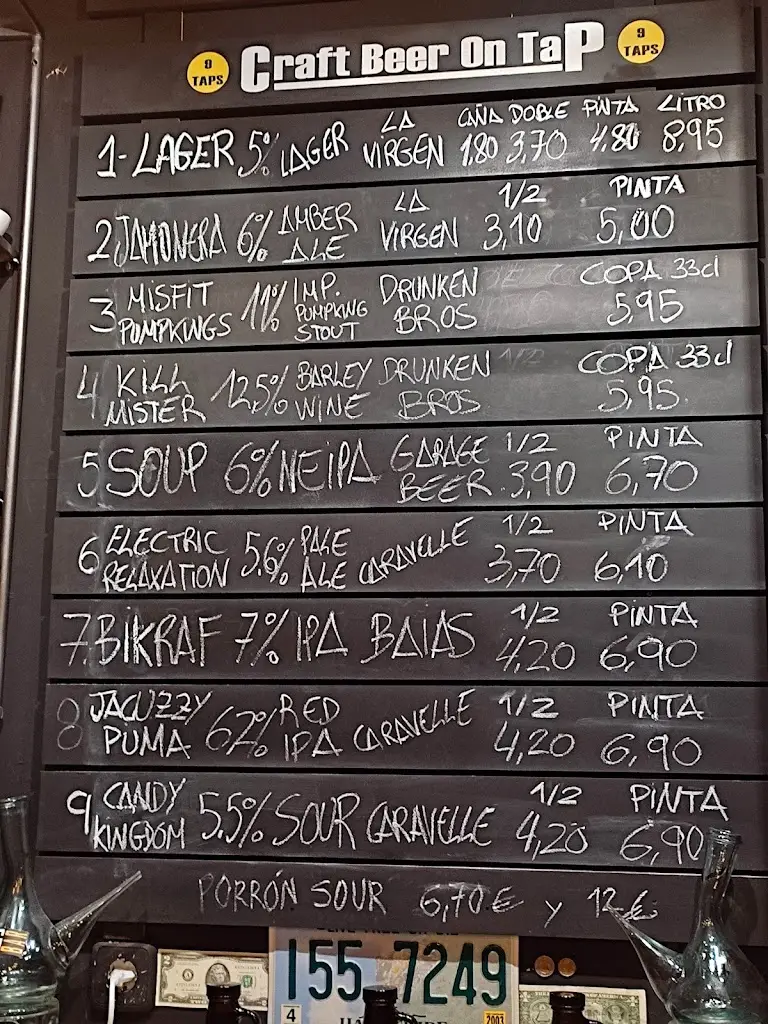 9 TAPS Craft Beer On Tap 9 TAPS
CAÑA DOBLE PINTA LITRO
1-LAGER 5% LAGER LA VIRGEN 1.80 3,70 4.80 8,95
1/2 PINTA
2 JAMONERA 6% AMBER ALE LA VIRGEN 3,10 5,00
COPA 33cl
3 MISFIT PUMPKINGS 11% IMP. PUMPKING STOUT DRUNKEN BROS 5,95
COPA 33cl
4 KILL MISTER 12.5% BARLEY WINE DRUNKEN BROS 5,95
1/2 PINTA
5 SOUP 6% NEIPA GARAGE BEER 3,90 6,70
1/2 PINTA
6 ELECTRIC RELAXATION 5.6% PALE ALE CARAVELLE 3,70 6,10
1/2 PINTA
7. BIKRAF 7% IPA BAIAS 4,20 6,90
1/2 PINTA
8 JACUZZY PUMA 6.2% RED IPA CARAVELLE 4,20 6,90
1/2 PINTA
9 CANDY KINGDOM 5.5% SOUR CARAVELLE 4,20 6,90
PORRÓN SOUR 6,70€ y 12€
155 7249
4 2003